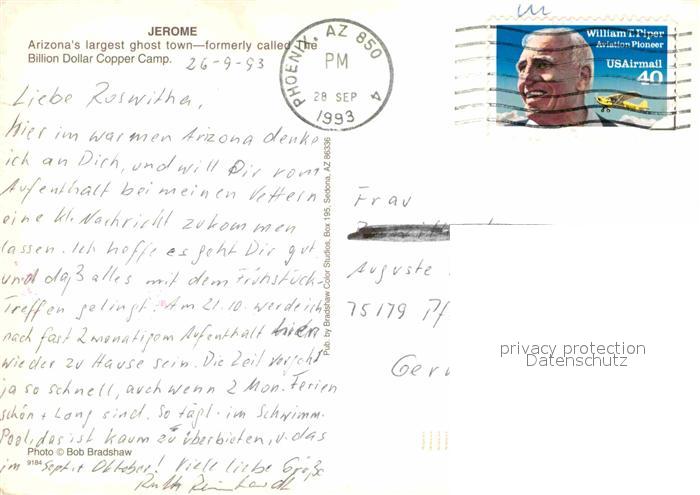 JEROME
Arizona's largest ghost town—formerly called The
Billion Dollar Copper Camp.
26-9-93
Liebe Roswitha,
hier im warmen Arizona denke
ich an Dich, und will Dir vom
Aufenthalt bei meinen Vettern
eine kl. Nachricht zukommen
lassen. Ich hoffe es geht Dir gut
und daß alles mit dem Frühstück-
Treffen gelingt. Am 21.10. werde ich
nach fast 2 monatigem Aufenthalt hier
wieder zu Hause sein. Die Zeit vergeht
ja so schnell, auch wenn 2 Mon. Ferien
schön + lang sind. So tägl. im Schwimm.
Pool, das ist kaum zu überbieten, u. das
im Sept. + Oktober! Viele liebe Grüße
Ruth Reinhardt
Photo © Bob Bradshaw
9184
Pub. by Bradshaw Color Studios, Box 195, Sedona, AZ 86336
PHOENIX, AZ 850
PM
28 SEP
1993
4
William T. Piper
Aviation Pioneer
USAirmail
40
Frau
Auguste
75179 Pf
Ger
privacy protection
Datenschutz